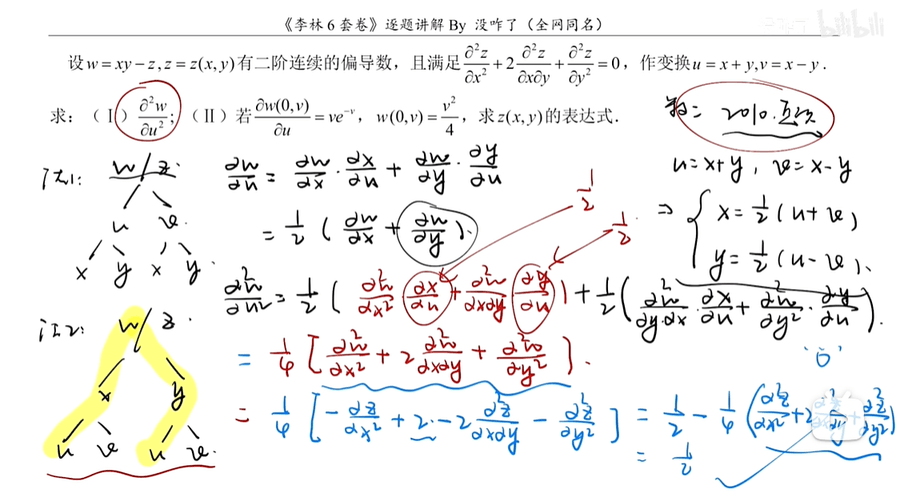 《李林6套卷》逐题讲解 By 没咋了（全网同名）
bilibili
设 w = xy − z, z = z(x, y) 有二阶连续的偏导数，且满足 ∂²z/∂x² + 2 ∂²z/∂x∂y + ∂²z/∂y² = 0，作变换 u = x + y, v = x − y .
求：（Ⅰ）∂²w/∂u²;（Ⅱ）若 ∂w(0,v)/∂u = ve⁻ᵛ，w(0,v) = v²/4，求 z(x, y) 的表达式.
2010.
法1: w/z.
u v.
x y x y.
∂w/∂u = ∂w/∂x · ∂x/∂u + ∂w/∂y · ∂y/∂u
= 1/2 ( ∂w/∂x + ∂w/∂y ).
1/2
1/2
u=x+y, v=x−y
⇒ { x = 1/2 (u+v)
y = 1/2 (u−v).
∂²w/∂u² = 1/2 ( ∂²w/∂x² · ∂x/∂u + ∂²w/∂x∂y · ∂y/∂u ) + 1/2 ( ∂²w/∂y∂x · ∂x/∂u + ∂²w/∂y² · ∂y/∂u ).
法2: w/z.
x y
u v u v.
= 1/4 [ ∂²w/∂x² + 2 ∂²w/∂x∂y + ∂²w/∂y² ].
"0"
= 1/4 [ −∂²z/∂x² + 2 − 2 ∂²z/∂x∂y − ∂²z/∂y² ] = 1/2 − 1/4 ( ∂²z/∂x² + 2 ∂²z/∂x∂y + ∂²z/∂y² )
= 1/2